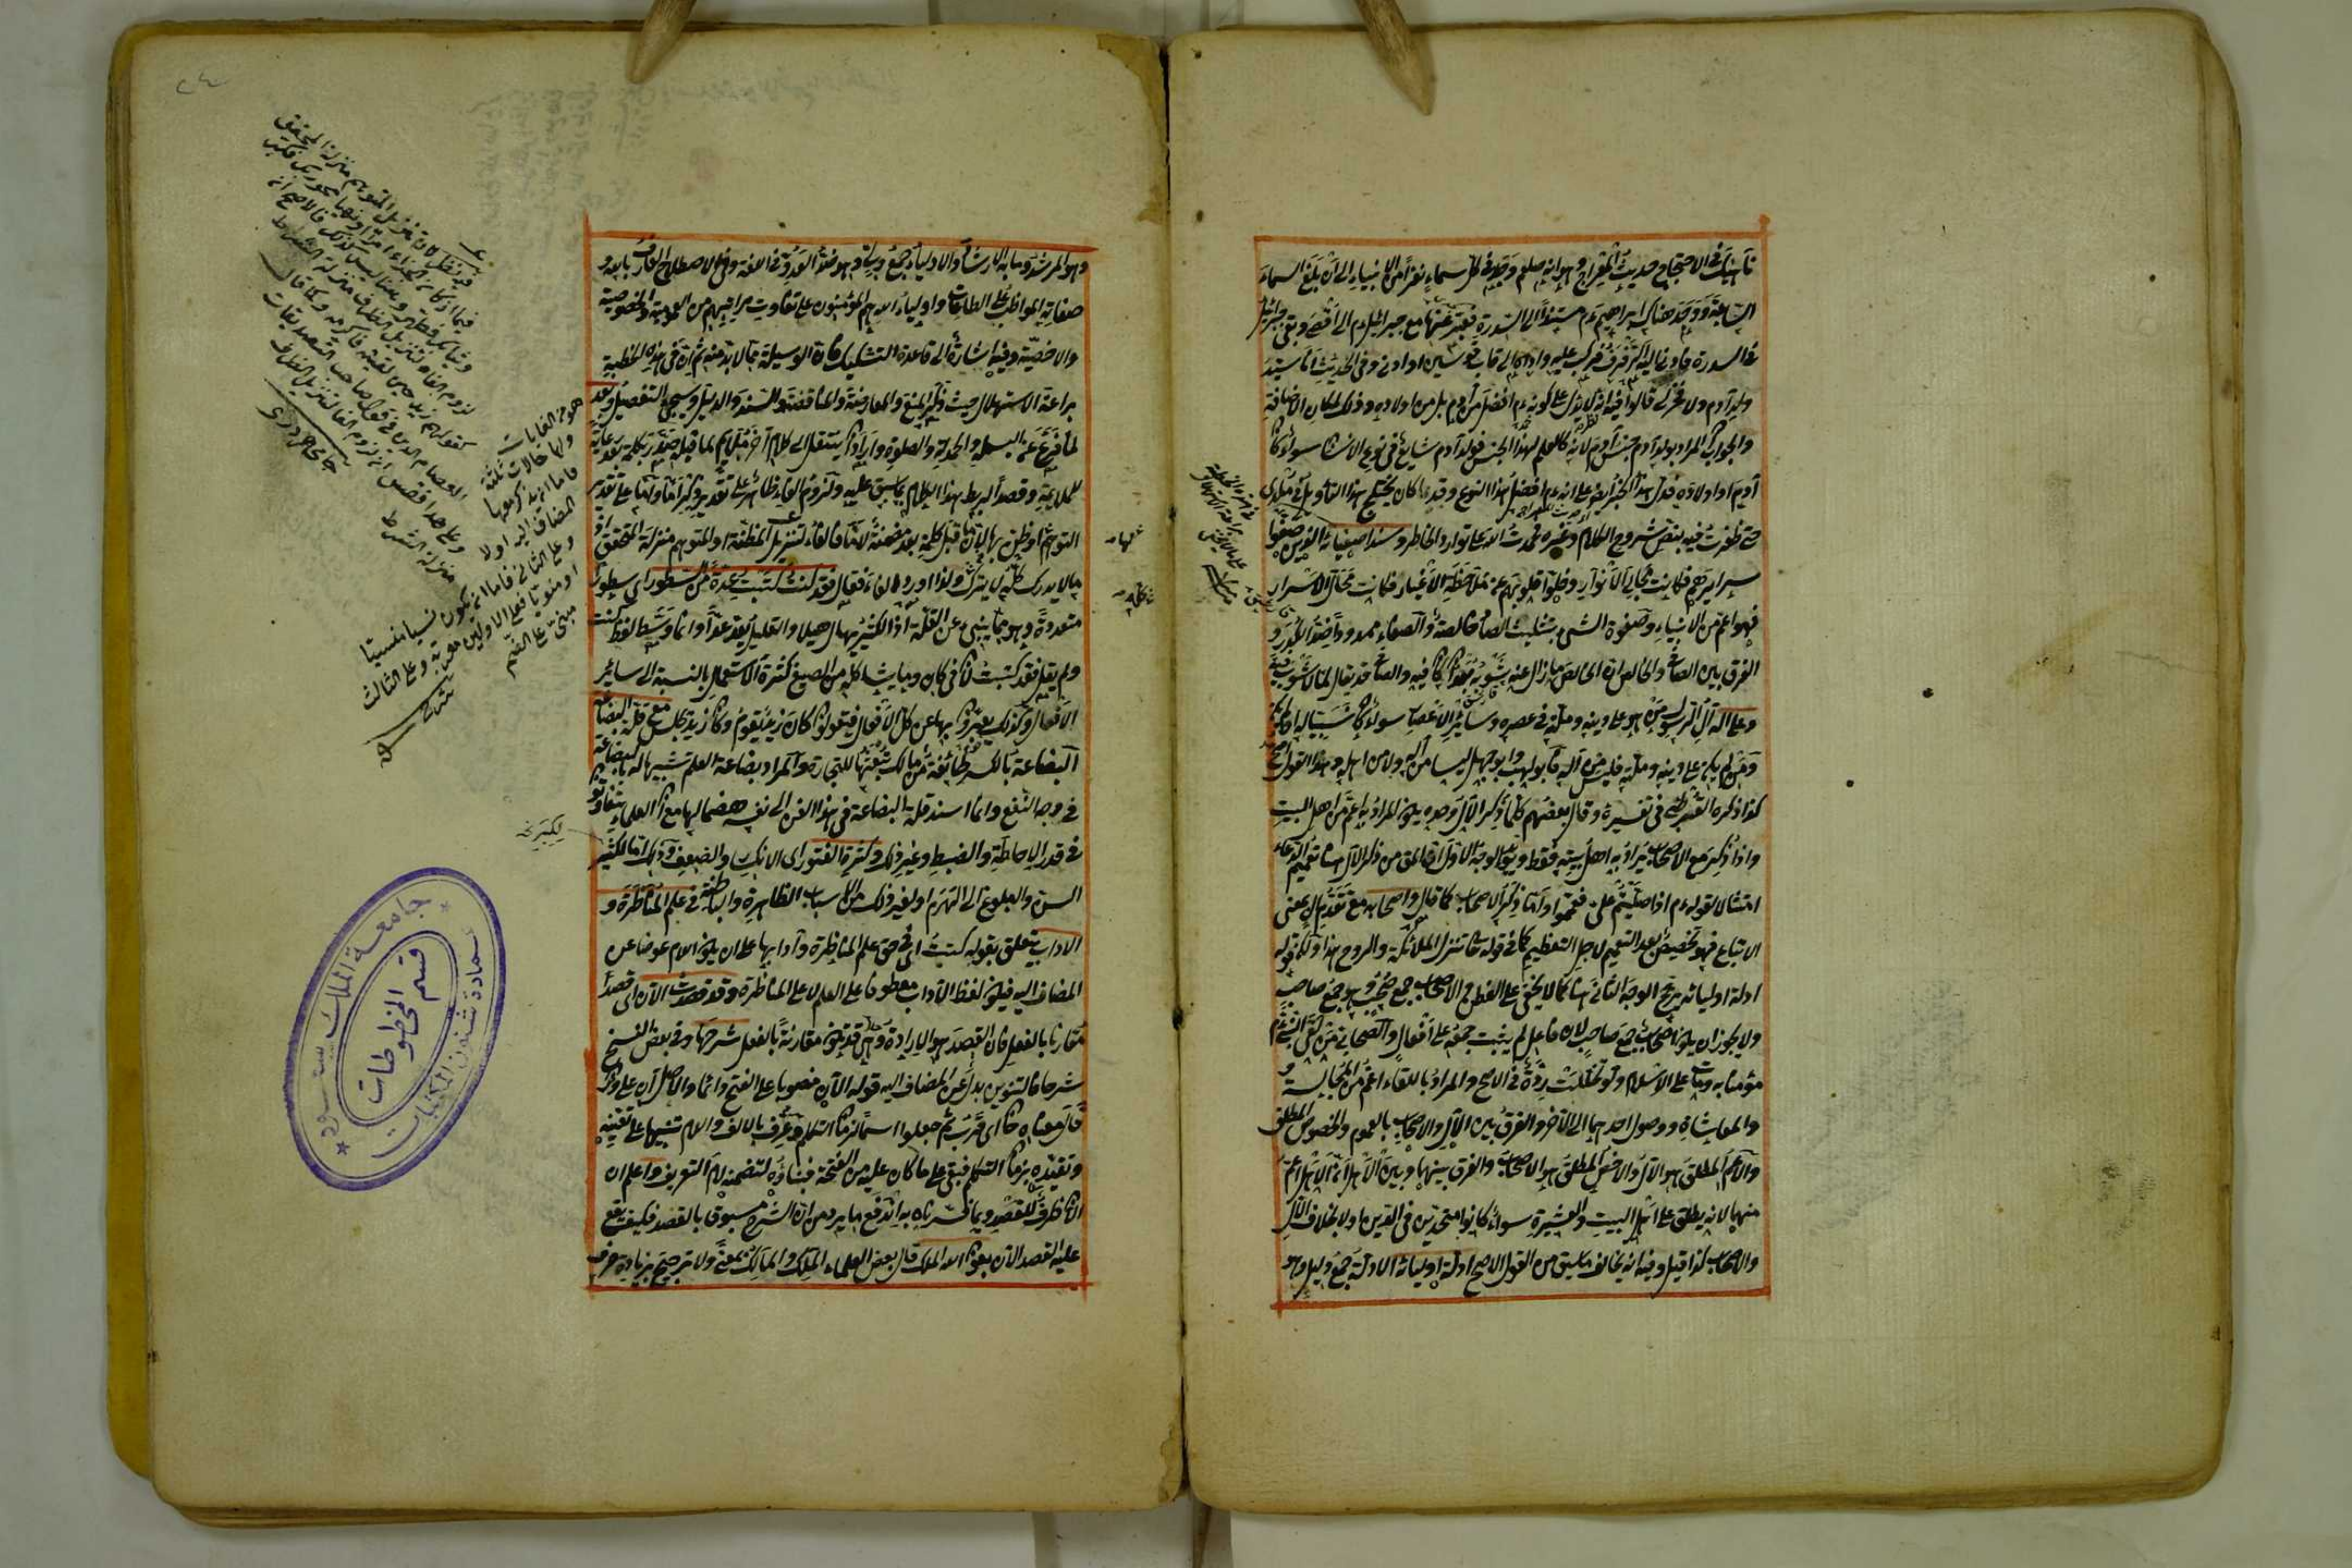 ناهيك في الاحتجاج حديث المعراج وهو انه صلعم وجد في كل سماء نفرا من الانبياء الى ان بلغ السماء
السابعة ووجد هناك ابراهيم ءم مستندا الى السدرة فعبر عنها مع جبرائيل ءم الى اقصى وبقى جبرائيل
عليه الى قاب قوسين او ادنى وفي الحديث انا سيد
ولد آدم ولا فخر لى قالوا فيه انه لا يدل على كونه ءم افضل من آدم بل من اولاده وذلك لمكان الاضافة
والجواب المراد بولد آدم جنس آدم لانه كالعلم لهذا الجنس فولد آدم شايع في نوع الانسان سواء كان
آدم او اولاده فدل هذا الخبر ايضا على انه ءم افضل هذا النوع وقد كان يختلج هذا التأويل في خلدى
حتى ظفرت فيه بنص شروح الكلام وغيره فحمدت الله على توارد الخاطر وسند اصفيائه الذين صفوا
سرايرهم فكانت مجالى الانوار وخلوا قلوبهم عن ملاحظة الاغيار فكانت محال الاسرار
فهو اعم من الانبياء وصفوة الشئ بتثليث الصاد خالصه والصفاء ممدودا ضد الكدر و
الفرق بين الصافى والخالص ان الخالص ما زال عنه شوبه بعد ان كان فيه والصافى قد يقال لما لا شوب فيه
وعلى آله آل الرسول من هو على دينه وملته في عصره وسائر الاعصار سواء كان نسيبا له او لم يكن
ومن لم يكن على دينه وملته فليس من آله فابو لهب وابو جهل ليسا من آله ولا من اهله وهذا القول اصح
كذا ذكره القرطبى في تفسيره وقال بعضهم كلما ذكر الآل وحده يكون المراد به اعم من اهل البيت
واذا ذكر مع الاصحاب يراد به اهل بيته فقط ويؤيد الوجه الاول ان الحق من ذكر الآل هنا تعميم الدعاء
امتثالا لقوله ءم اذا صليتم على فعمموا واما ذكر الاصحاب كما قال واصحابه مع تقدم الآل بمعنى
الاتباع فهو تخصيص بعد التعميم لاجل التعظيم كما في قوله تعالى تنزل الملائكة والروح هذا ولكن قوله
ادلة اوليائه يرجح الوجه الثانى هنا كما لا يخفى على الفطن ثم الاصحاب جمع صحب وهو جمع صاحب
ولا يجوز ان يكون اصحاب جمع صاحب لان فاعل لم يثبت جمعه على افعال والصحابى من لقى النبى ءم
مؤمنا به ومات على الاسلام ولو تخللت ردة في الاصح والمراد باللقاء اعم من المجالسة و
والمماشاة ووصول احدهما الى الآخر والفرق بين الآل والاصحاب بالعموم والخصوص المطلق
والاعم المطلق هو الآل والاخص المطلق هو الاصحاب والفرق بينهما وبين الاهل ان الاهل اعم
منهما لانه يطلق على اهل البيت والعشيرة سواء كانوا متحدين في الدين او لا بخلاف الآل
والاصحاب كذا قيل وفيه انه يخالف ما سبق من القول الاصح ادلة اوليائه الادلة جمع دليل وهو
وهو المرشد وما به الارشاد والاولياء جمع ولى وهو ضد العدو في اللغة وفى الاصطلاح العارف بالله و
صفاته المواظب على الطاعات واولياء الله هم المؤمنون على تفاوت مراتبهم من العمومية والخصوصية
والاخصية وفيه اشارة الى قاعدة التشكيك فان الوسيلة مما لابد منه ثم ان فى هذه الخطبة
براعة الاستهلال حيث ذكر المنع والمعارضة والمناقضة والسند والدليل وسيجئ التفصيل وبعد
لما فرغ عن البسملة والحمدلة والصلوة واراد ان ينتقل الى كلام آخر غير ملايم لما قبله صدر بكلمة بعد رعاية
للملايمة وقصدا لربط هذا الكلام بما سبق عليه ولزوم الفاء ظاهر على تقدير ذكر اما واما على تقدير
التوهم او ظن بها لان ما قبل كلمة بعد مضمنة لاما فالفاء لتنزيل المظنة او المتوهم منزلة المتحقق اذ
ما لا يدرك كله لا يترك كله ولذا اورد الفاء فقال فقد كنت كتبت عدة من السطور اى سطورا
متعددة وهو مما ينبئ عن القلة اذ الكثير يهال هيلا والقليل يعد عدا وانما وسط لفظ كنت
ولم يقل فقد كتبت لان في كان وما يشاكله من الصيغ كثرة الاستعمال بالنسبة الى سائر
الافعال ولذلك يعبرون بها عن كل الافعال فتقولون كان زيد يقوم وكان زيد يجلس مع قلة البضاعة
البضاعة بالكسر طائفة من مالك تبعثها للتجارة والمراد بضاعة العلم تشبيها له بالبضاعة
في وجه النفع وانما اسند قلة البضاعة في هذا الفن الى نفسه هضما لها مع ان العلماء يتفاوتون
في قدر الاحاطة والضبط وغير ذلك وكثرة الفتور اى الانكسار والضعف وذلك اما لكثير
السن والبلوغ الى الهرم او لغير ذلك من الاسباب الظاهرة والباطنة في علم المناظرة و
الاداب يتعلق بقوله كتبت اى في حق علم المناظرة وآدابها على ان يكون اللام عوضا عن
المضاف اليه فيكون لفظ الآداب معطوفا على العلم لا على المناظرة وقد قصدت الآن اى قصدا
مقارنا بالفعل فان القصد هو الارادة وهى قد تكون مقارنة بالفعل شرحها وفى بعض النسخ
شرحا فالتنوين بدل عن المضاف اليه قوله الآن منصوبا على الفتح دائما والاصل آن على وزن
قال معناه حان اى قرب ثم جعلوا اسما لزمان التكلم وعرف بالالف واللام تنبيها على تعينه
وتقيده بزمان التكلم فبقى على ما كان عليه من الفتحة فبناؤه لتضمنه لام التعريف واعلم ان
الآن ظرف للقصد وبما فسرناه به اندفع ما يرد من ان الشرح مسبوق بالقصد فكيف يقع
عليه القصد الآن بعون الله الملك قال بعض العلماء الملك والمالك بمعنى ولا ترجيح بزيادة حرف
هو من الغايات
ولها حالات ثلثة
فاما ان يذكر معها
المضاف اليه او لا
وعلى الثانى فاما ان يكون نسيا منسيا
او منويا فعلى الاولين معربة وعلى الثالث
مبنى على الضم
جامعة الملك سعود
قسم المخطوطات
عمادة شئون المكتبات